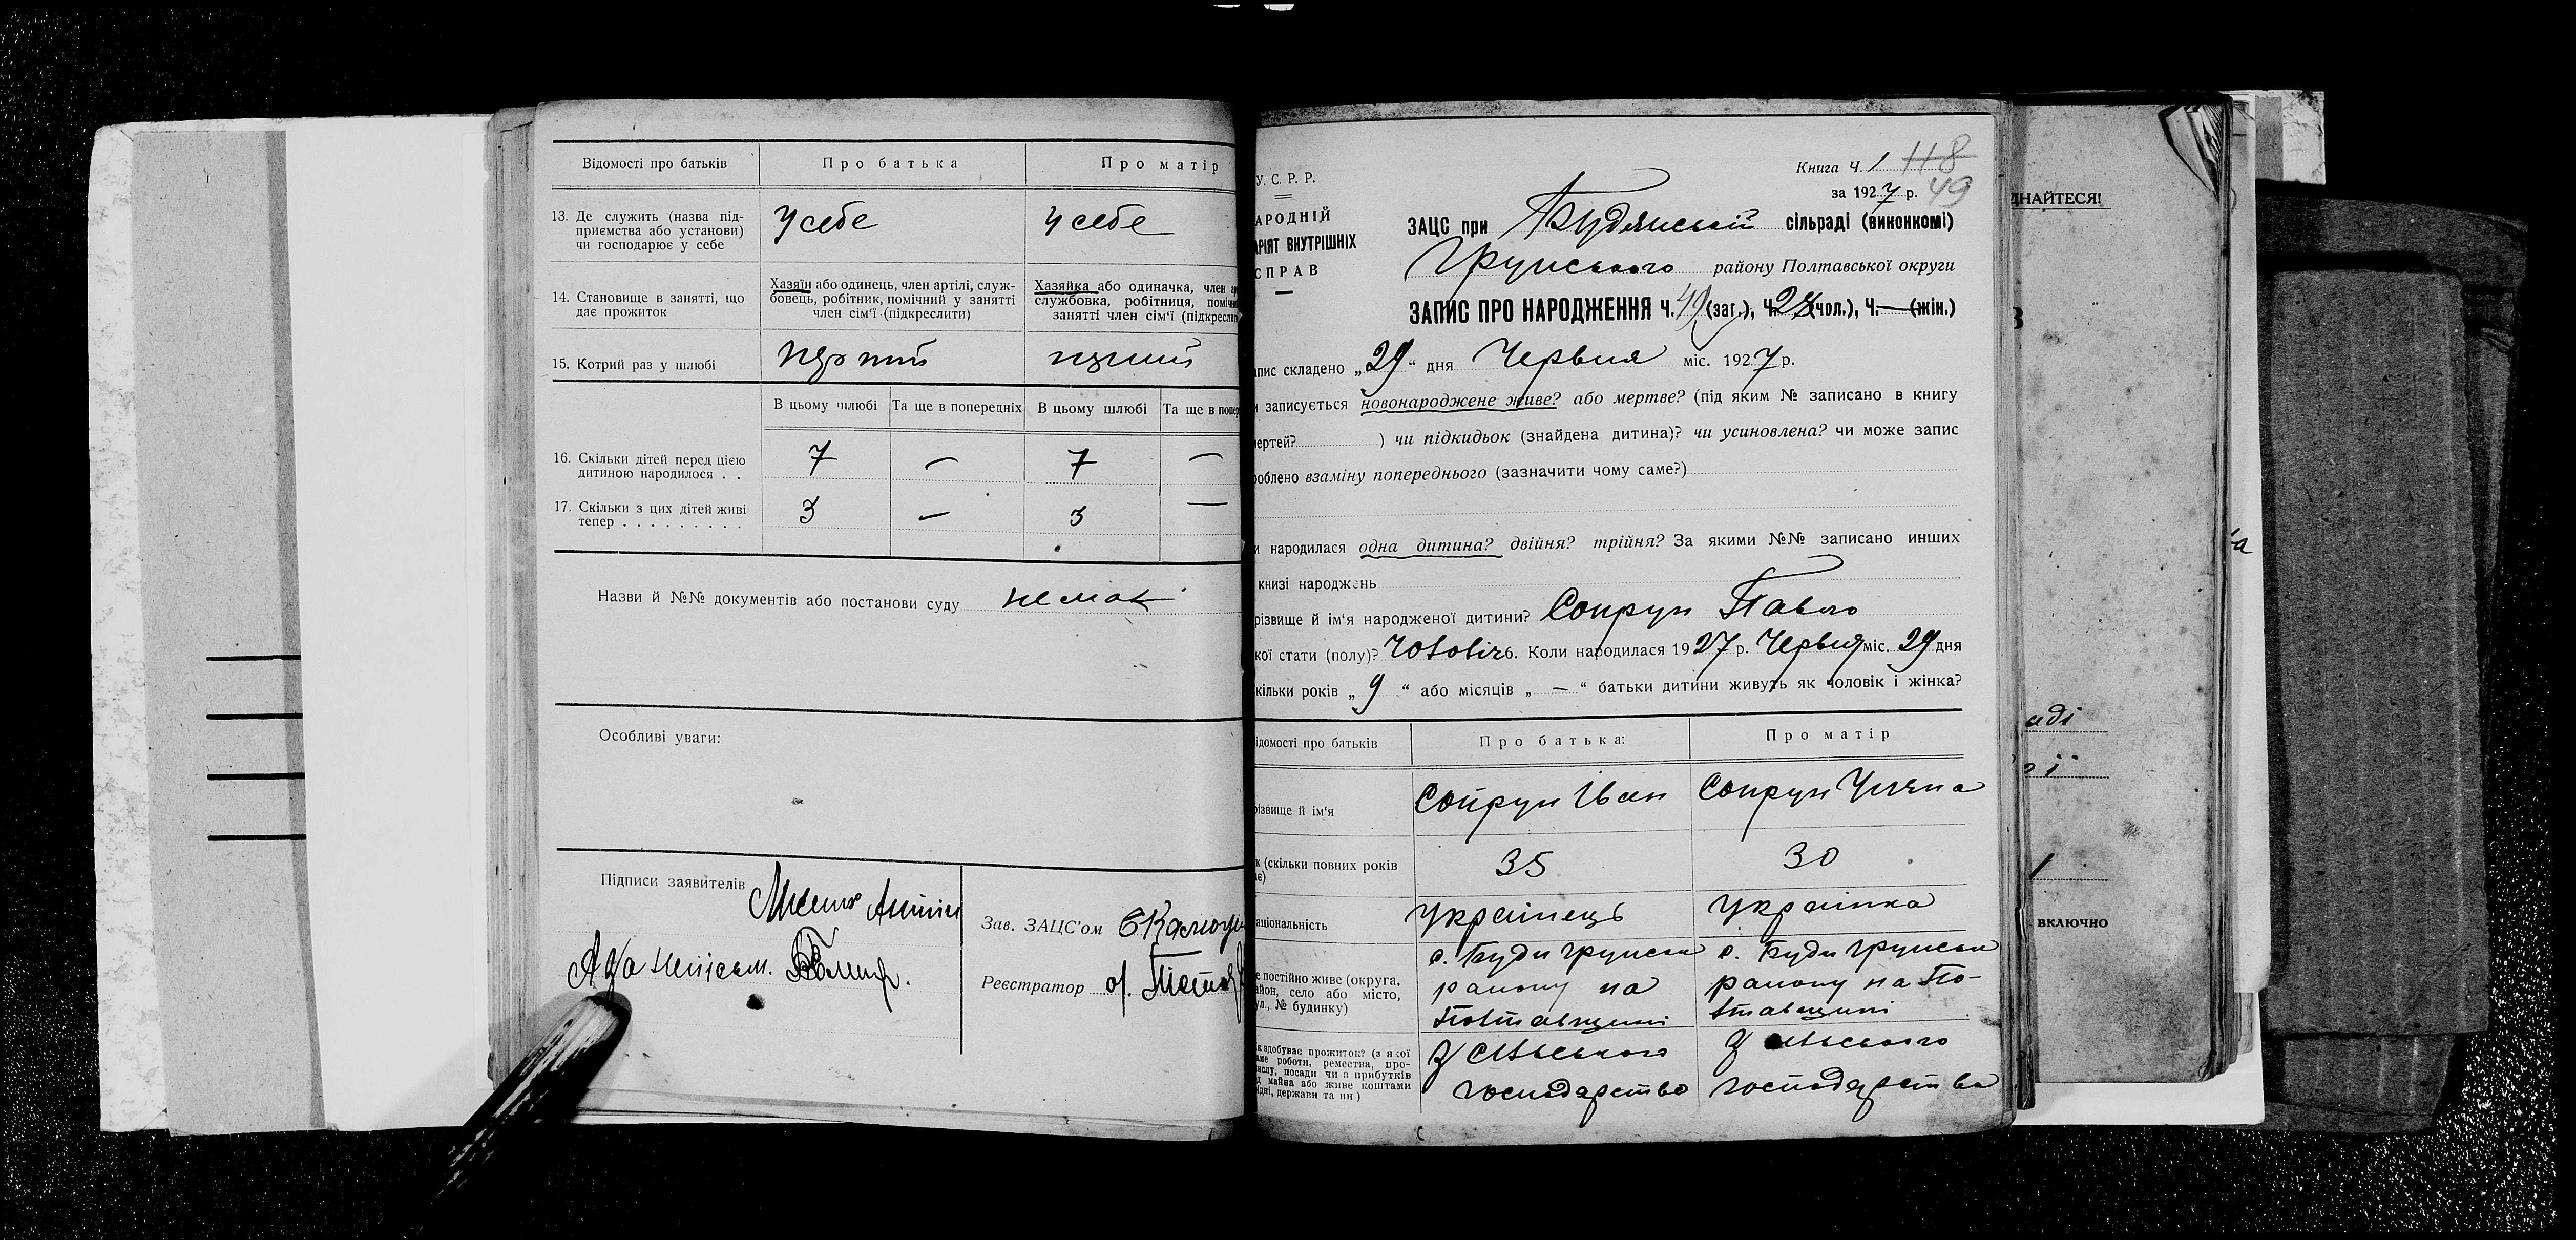 Відомості про батьків Про батька Про матір
13. Де служить (назва під-
приємства або установи)
чи господарює у себе
у себе у себе
14. Становище в занятті, що
дає прожиток
Хазяїн або одинець, член артілі, служ-
бовець, робітник, помічний у занятті
член сім'ї (підкреслити)
Хазяйка або одиначка, член
службовка, робітниця,
занятті член сім'ї
15. Котрий раз у шлюбі
В цьому шлюбі Та ще в попередніх В цьому шлюбі Та ще в
16. Скільки дітей перед цією
дитиною народилося . .
7 — 7 —
17. Скільки з цих дітей живі
тепер . . . . . . . . .
3 — 3 —
Назви й №№ документів або постанови суду немає
Особливі уваги:
Підписи заявителів
Зав. ЗАЦС'ом
Реєстратор
У.С.Р.Р.
АРОДНІЙ
АРІЯТ ВНУТРІШНІХ
СПРАВ
Книга Ч. 1 118
за 1927 р. 49
ЗАЦС при Будянській сільраді (виконкомі)
Грунського району Полтавської округи
ЗАПИС ПРО НАРОДЖЕННЯ Ч. 49 (заг.), Ч. 28 (чол.), Ч. — (жін.)
апис складено „29“ дня Червня міс. 1927 р.
и записується новонароджене живе? або мертве? (під яким № записано в книгу
мертей? ) чи підкидьок (знайдена дитина)? чи усиновлена? чи може запис
роблено взаміну попереднього (зазначити чому саме?)
и народилася одна дитина? двійня? трійня? За якими №№ записано инших
книзі народжень
різвище й ім'я народженої дитини? Сопрун Павло
кої стати (полу)? чоловіч 6. Коли народилася 1927 р. Червня міс. 29 дня
кільки років „9“ або місяців „—“ батьки дитини живуть як чоловік і жінка?
ідомості про батьків Про батька: Про матір
різвище й ім'я Сопрун Іван Сопрун
к (скільки повних років 35 30
аціональність Українець Українка
е постійно живе (округа,
айон, село або місто,
ул., № будинку)
с. Буди Грунськ
району на
Полтавщині
с. Буди Грунськ
району на По-
лтавщині
к здобуває прожиток? (з якої
аме роботи, ремества, про-
ислу, посади чи з прибутків
д майна або живе коштами
ідні, держави та ин)
З сільського
господарства
З сільського
господарства
ДНАЙТЕСЯ!
аді
ої
ВКЛЮЧНО